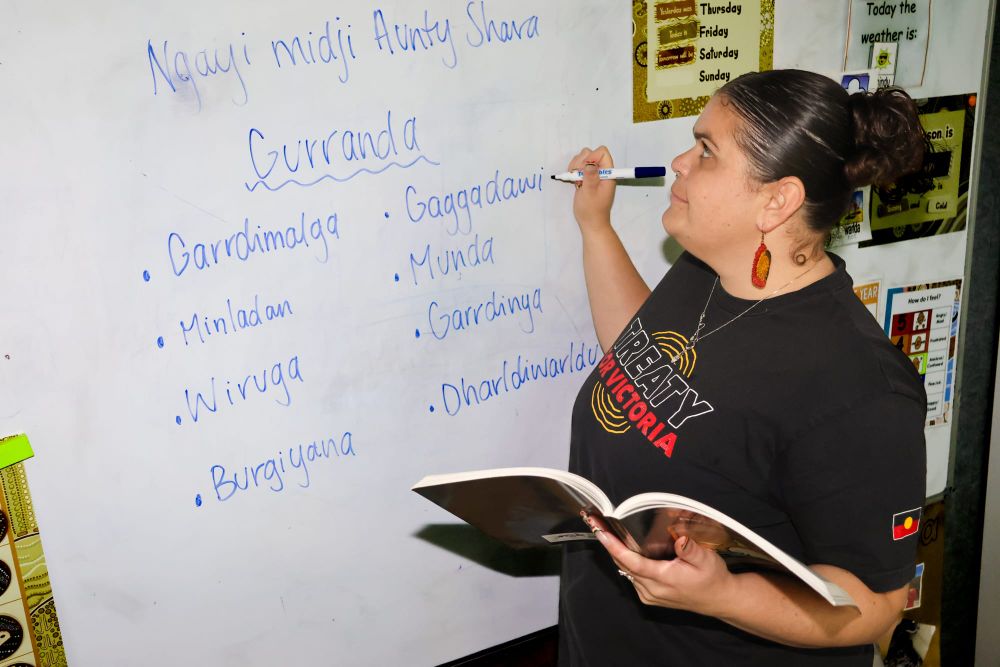 Ngayi midji Aunty Shara
Gurranda
• Garrdimalga
• Minladan
• Wiruga
• Burgiyana
• Gaggadawi
• Muṇda
• Garrdinya
• Dharldiwarldu
Yesterday was
Today is
Tomorrow will be
Thursday
Friday
Saturday
Sunday
Today the
weather is:
son is
Cold
warda
YEAR
How do I feel?
5
4
TREATY
FOR VICTORIA